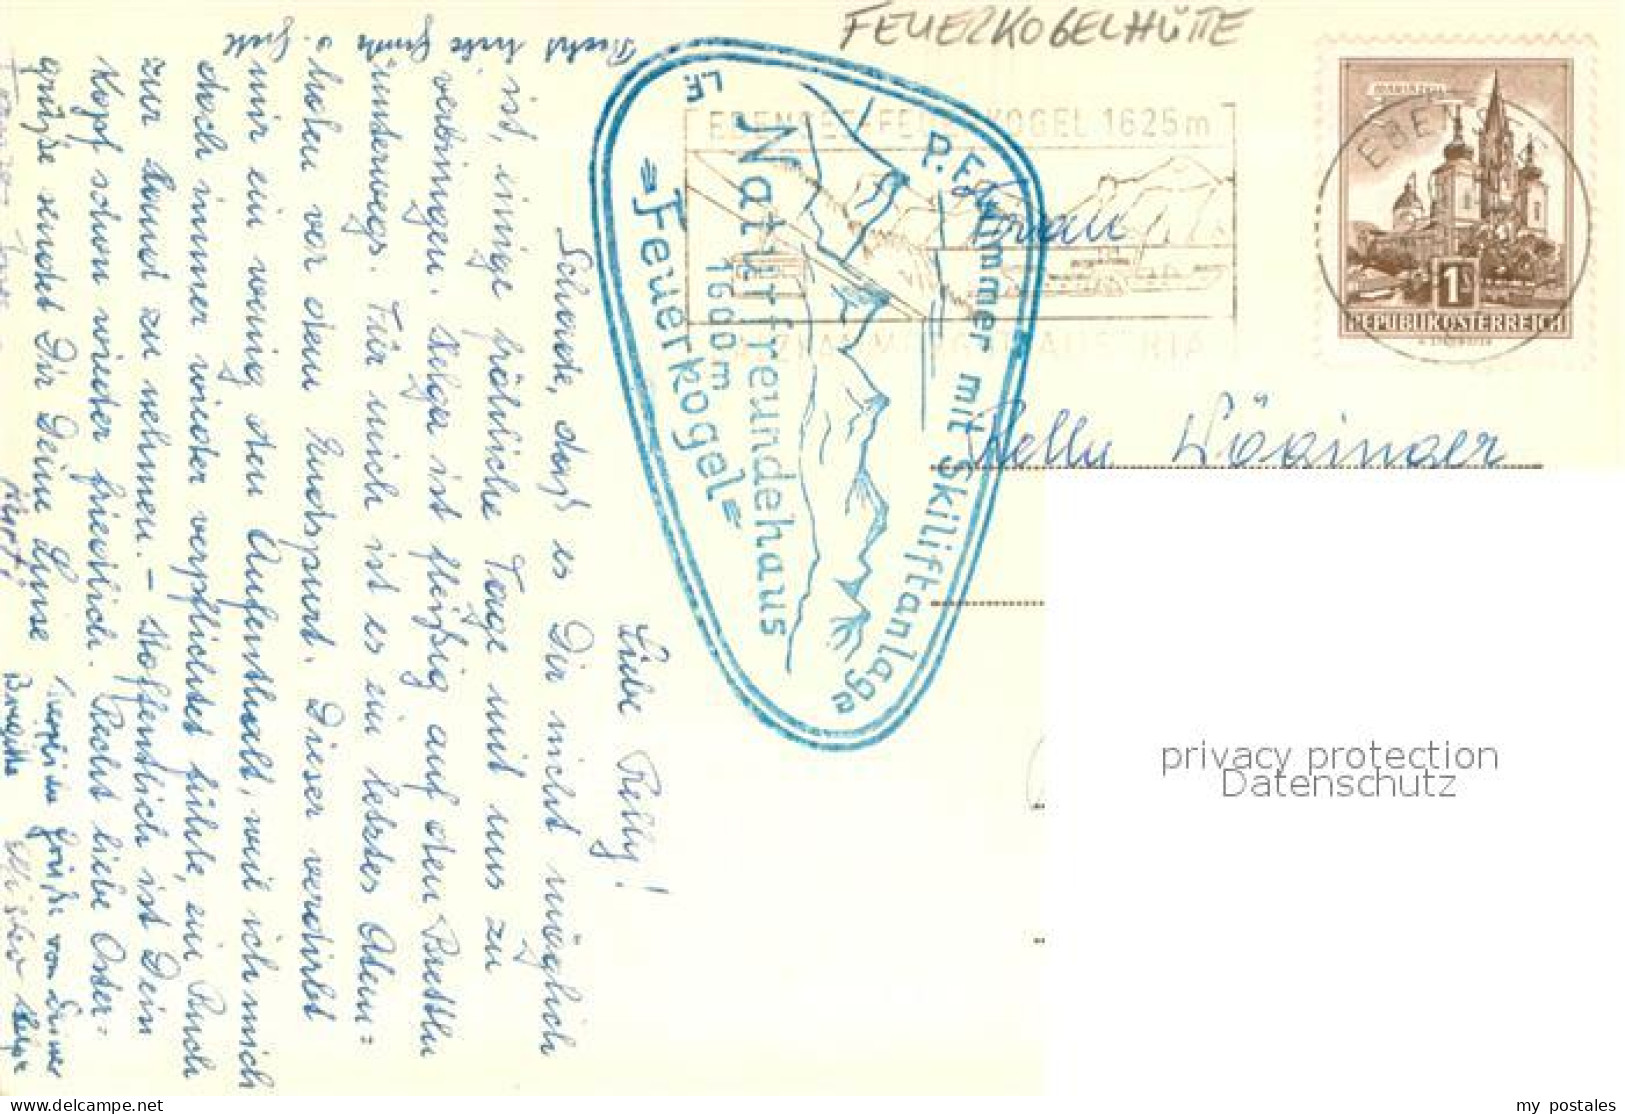 FEUERKOGELHÜTTE
MARIAZELL
EBENSEE
1 S
REPUBLIK ÖSTERREICH
EBENSEE-FEUERKOGEL 1625m
SALZKAMMERGUT AUSTRIA
P. Famler mit Skiliftanlage
Naturfreundehaus
1600m
=Feuerkogel=
Frau
Nelly
privacy protection
Datenschutz
Liebe Nelly!
Schade, daß es Dir nicht möglich
ist, einige fröhliche Tage mit uns zu
verbringen. Helga ist fleißig auf den Brettln
unterwegs. Für mich ist es ein letztes Atem=
holen vor dem Endspurt. Dieser verdirbt
mir ein wenig den Aufenthalt, weil ich mich
doch immer wieder verpflichtet fühle, ein Buch
zur Hand zu nehmen. - Hoffentlich ist Dein
Kopf schon wieder friedlich. Recht liebe Oster=
grüße sendet Dir Deine Luise
Herzliche Grüße von Deiner
Helga
Brigitte
Recht liebe Grüße
my postales